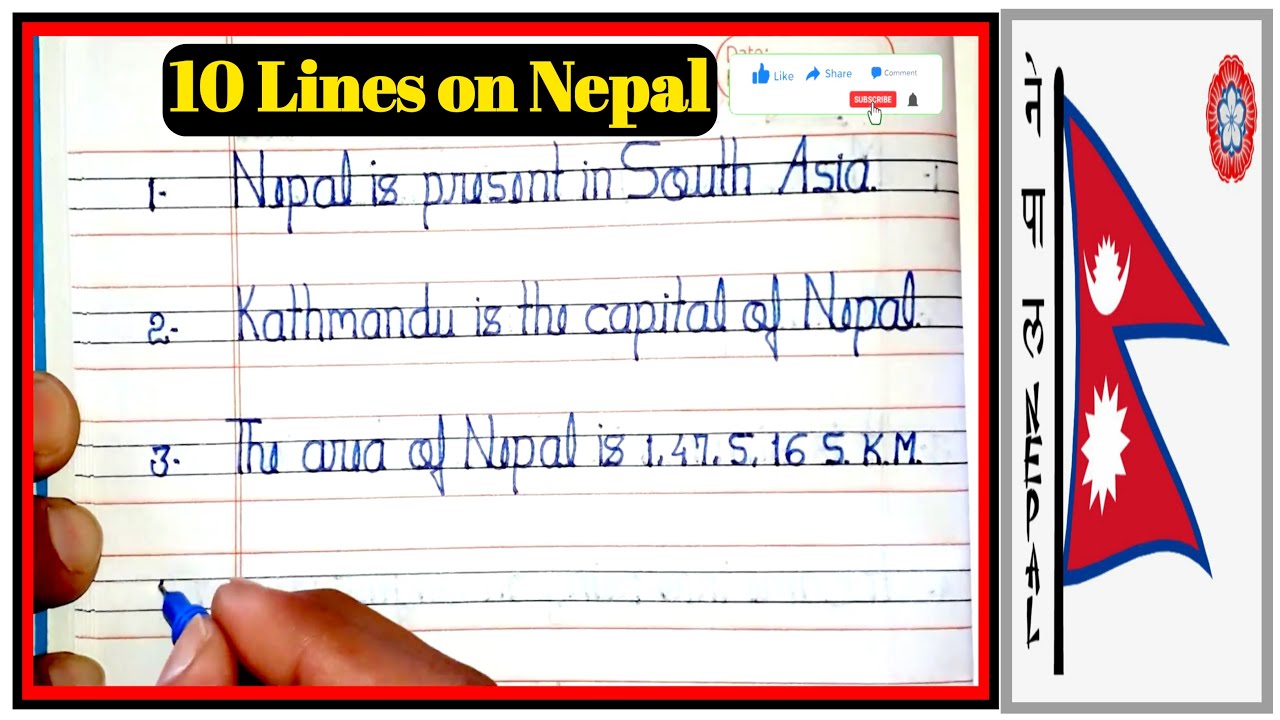 10 Lines on Nepal
Date:
Like
Share
Comment
SUBSCRIBE
1- Nepal is present in South Asia.
2- Kathmandu is the capital of Nepal.
3- The area of Nepal is 1,47,5,16 S.K.M.
ने पा ल